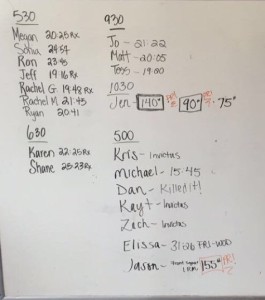 530
Megan 20:25 Rx
Sofia 24:54
Ron 23:45
Jeff 19:16 Rx
Rachel G. 19:48 Rx
Rachel M. 21:45
Ryan 20:41
630
Karen 22:25 Rx
Shane 25:23 Rx
930
Jo - 21:22
Matt - 20:05
Tess - 19:00
1030
Jen - 140# PR! 90# PR! 75#
500
Kris - Invictus
Michael - 15:45
Dan - Killed it!
Kayt - Invictus
Zach - Invictus
Elissa - 31:26 FRI-WOD
Jason - Front Squat 155# PR!